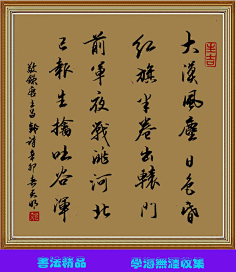 大漠風塵日色昏
紅旗半卷出轅門
前軍夜戰洮河北
已報生擒吐谷渾
書法精品 學海無涯收集